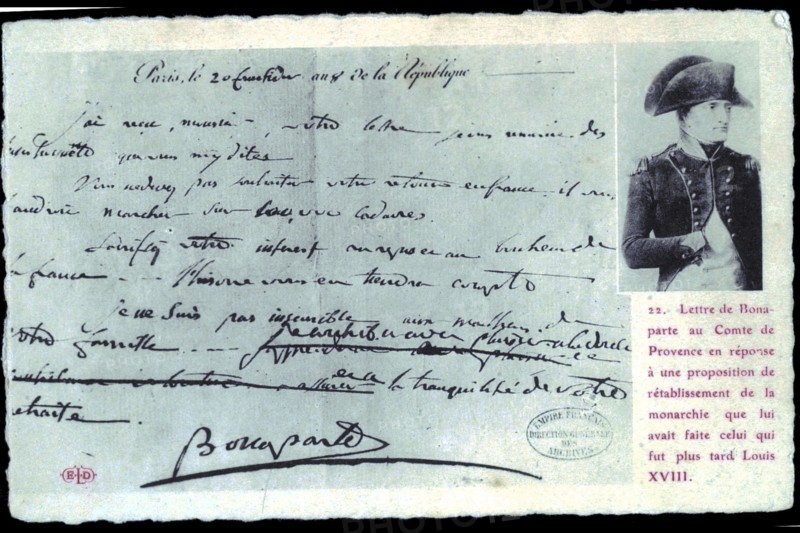 Paris, le 20 fructidor an 8 de la République
j'ai reçu, monsieur, votre lettre je vous remercie des
que vous m'y dites
Vous ne devez pas souhaiter votre retour en france, il vous
faudrait marcher sur 100,000 cadavres.
Sacrifiez votre interest au repos et au bonheur de
la france -- l'histoire vous en tiendra compte
je ne suis pas insensible aux malheurs de
votre famille --
la tranquilité de votre
retraite.
Bonaparte
EMPIRE FRANÇAIS
DIRECTION GÉNÉRALE
DES
ARCHIVES
ELD
22. - Lettre de Bona-
parte au Comte de
Provence en réponse
à une proposition de
rétablissement de la
monarchie que lui
avait faite celui qui
fut plus tard Louis
XVIII.
PHOTO12